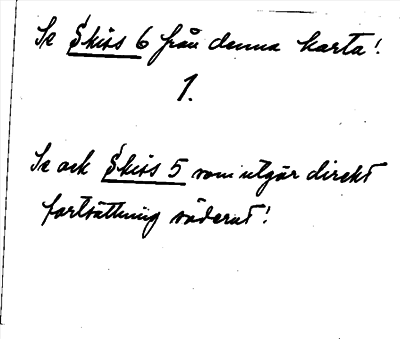 Se Skiss 6 från denna karta!
1.
Se ock Skiss 5 som utgör direkt
fortsättning söderut!